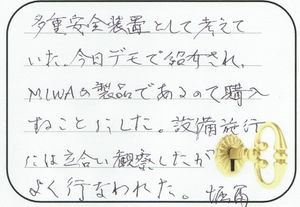 多重安全装置として考えて
いた。今日デモで紹介され、
MIWAの製品であるので購入
することにした。設備施行
には立合い観察したが
よく行なわれた。堀